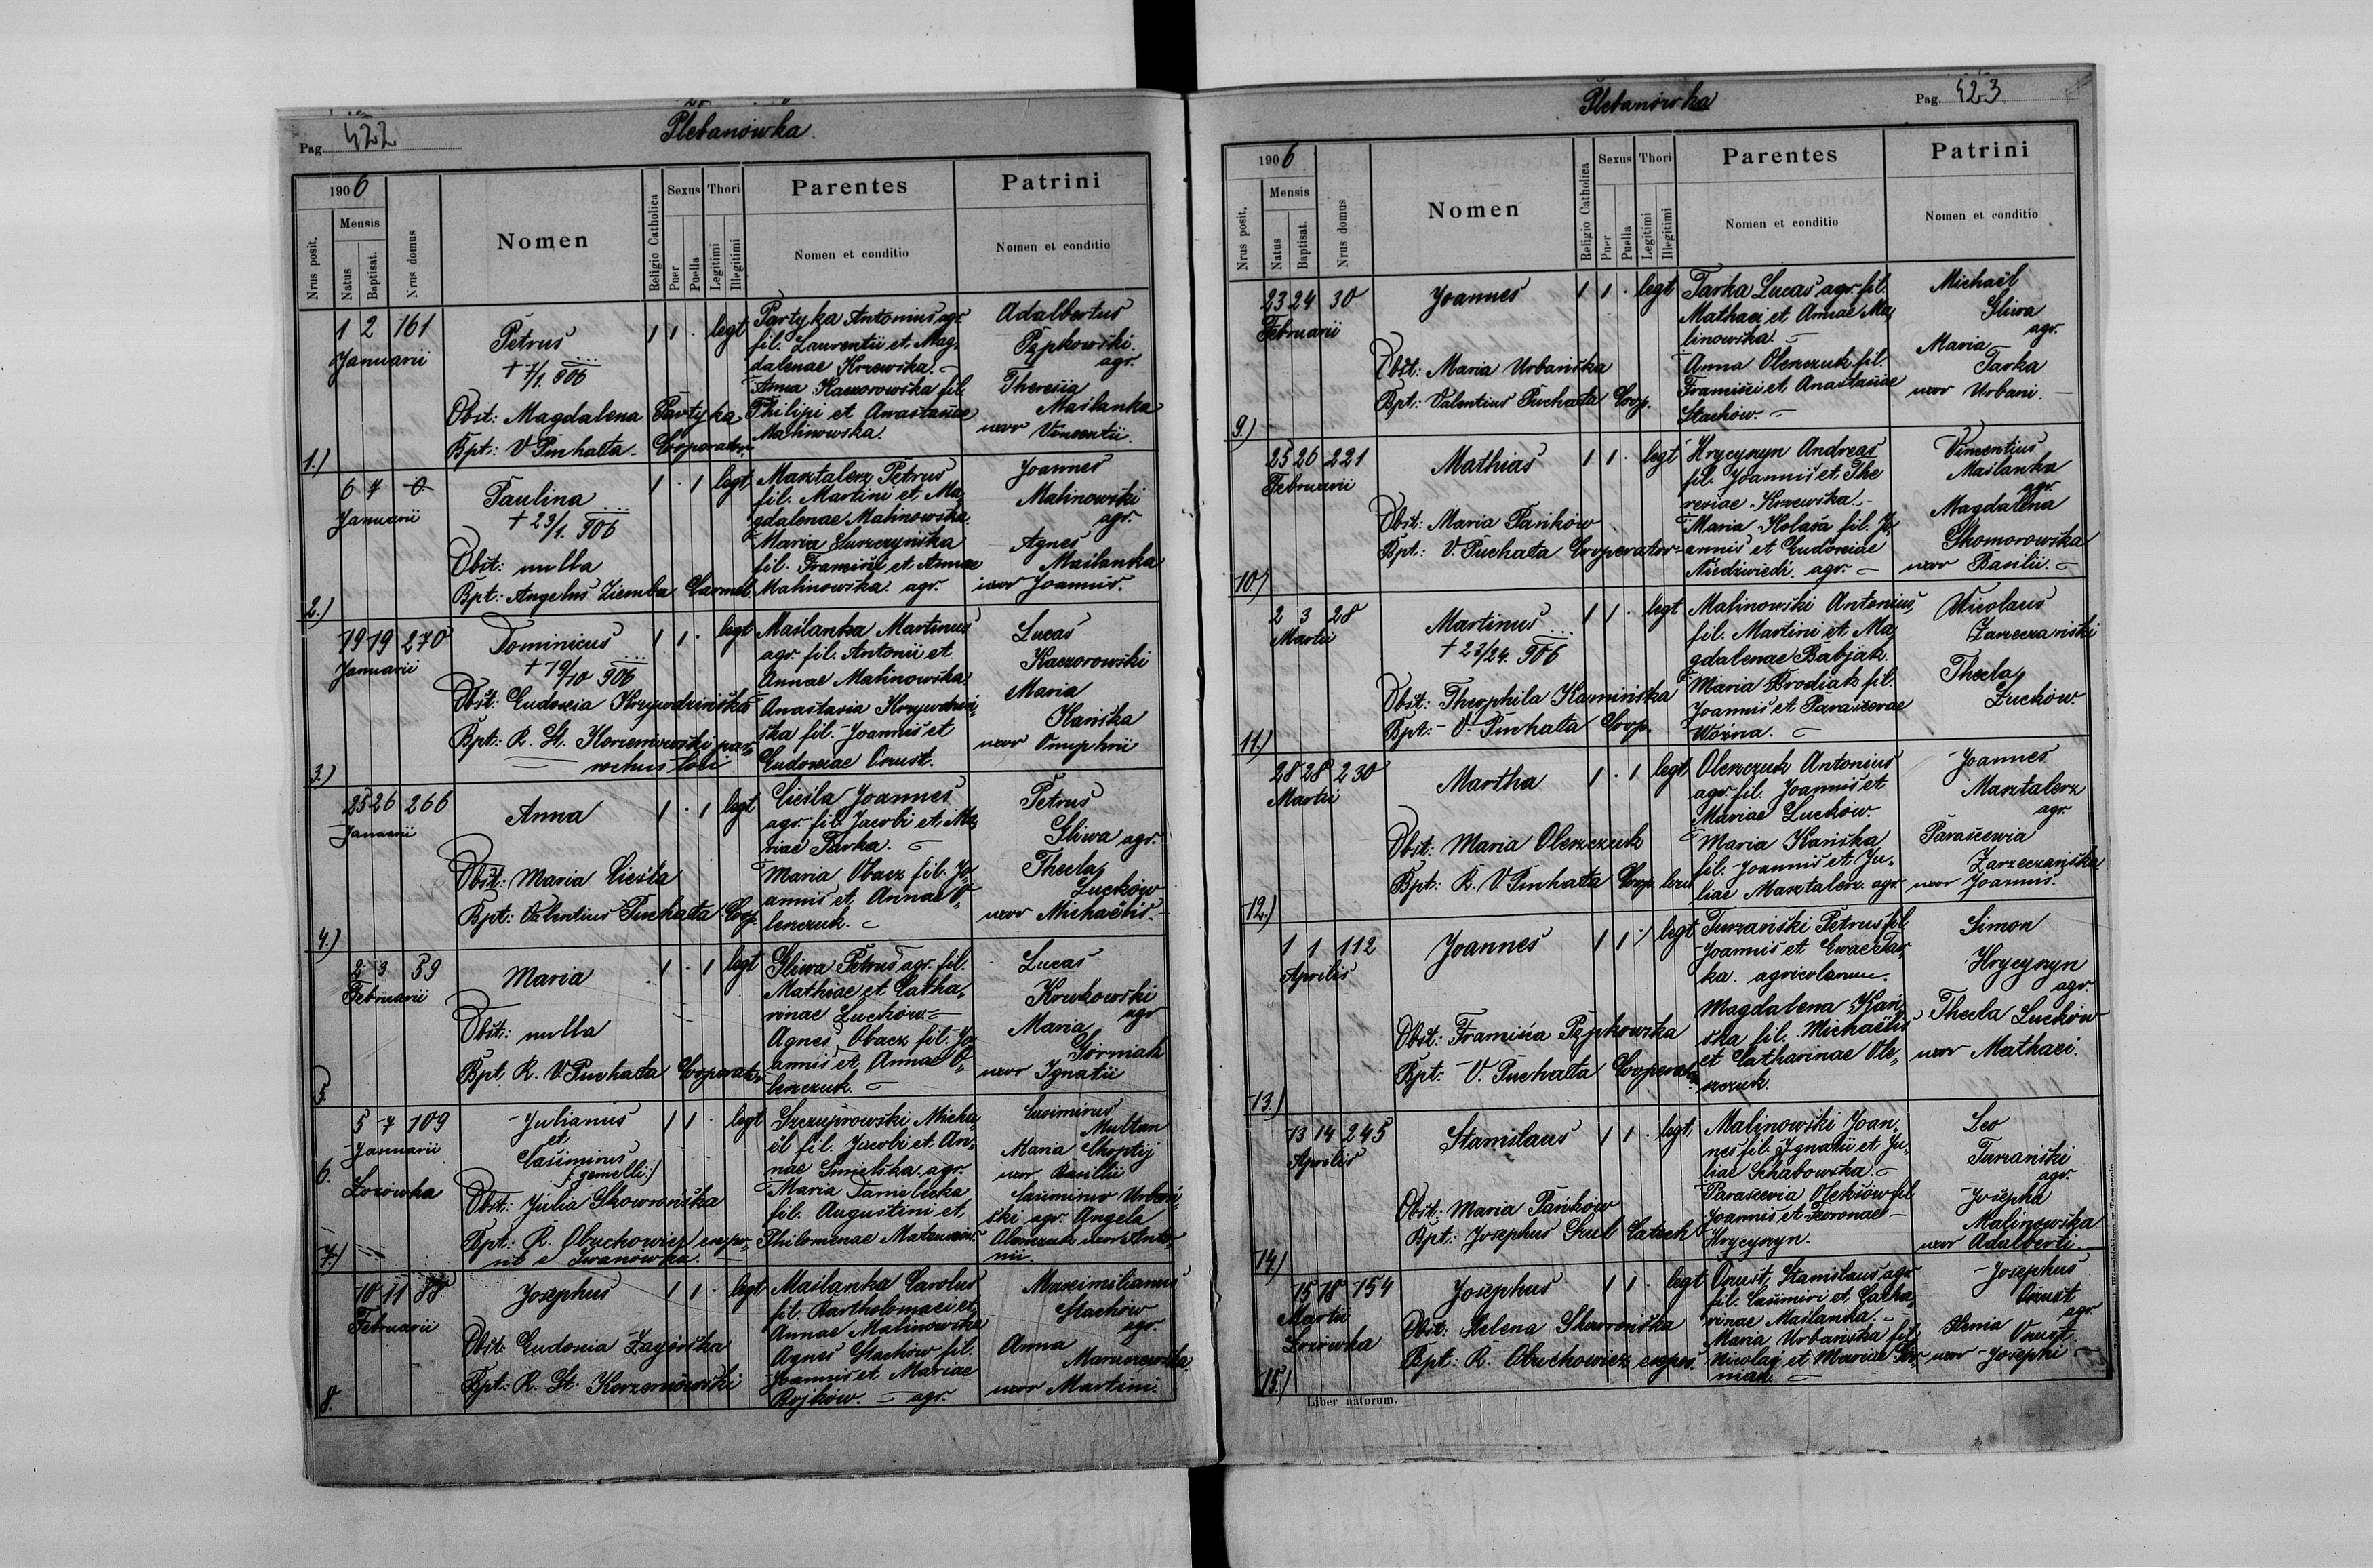 Pag. 422
Plebanówka.
1906
Nrus posit.
Mensis
Natus
Baptisat.
Nrus domus
Nomen
Religio Catholica
Sexus
Puer
Puella
Thori
Legitimi
Illegitimi
Parentes
Nomen et conditio
Patrini
Nomen et conditio
1.)
1 2 161
Januarii
Petrus
+ 7/1. 906
Obst: Magdalena Partyka
Bpt: V Puchała Cooperator
1 1 . legt
Partyka Antonius agr.
fil. Laurentii et Mag,
dalenae Krzewska.
Anna Kaczorowska fil.
Philipi et Anastasiae
Malinowska.
Adalbertus
Pępkowski.
agr.
Theresia
Maślanka
uxor Vincentii.
2.)
6 7 0
Januarii
Paulina
+ 23/1. 906
Obst: nulla
Bpt: Angelus Ziemba Carmel.
1 . 1 legt
Masztalerz Petrus
fil. Martini et Ma,
gdalenae Malinowska.
Maria
fil. et Annae
Malinowska. agr.
Joannes
Malinowski
agr.
Agnes
Maślanka
uxor Joannis.
3.)
19 19 270
Januarii
Dominicus
+ 19/10 906
Obst: Eudoxia Krzywdzińska
Bpt: R. St. Korzeniowski par,
ochus loci
1 1 . legt
Maślanka Martinus
agr. fil. Antonii et
Annae Malinowska.
Anastasia Krzywdziń,
ska fil. Joannis et
Eudoxiae Oszust.
Lucas
Kaczorowski
Maria
Kańska
uxor Onuphrii
4.)
25 26 266
Januarii
Anna
Obst: Maria Cieśla
Bpt: Valentius Puchała Coop.
1 . 1 legt
Cieśla Joannes
agr. fil. Jacobi et Ma,
riae Tarka.
Maria Obacz fil. Jo,
annis et Annae O,
leszczuk.
Petrus
Śliwa agr.
Thecla
Łuckow
uxor Michaëlis.
5.
2 3 59
Februarii
Maria
Obst: nulla
Bpt. R. V. Puchała Cooperator
1 . 1 legt
Śliwa Petrus agr. fil.
Mathiae et Catha,
rinae Łuckow.
Agnes Obacz fil. Jo,
annis et Annae O,
leszczuk.
Lucas
Krukowski
agr
Maria
Górniak
uxor Ignatii
6.
7.)
5 7 109
Januarii
Łozówka
Julianus
et
Casimirus
(gemelli:)
Obst: Julia Skowrońska
Bpt: R. Obuchowicz expo,
nt e Iwanówka.
1 1 . legt
Szczuprowski Micha,
ël fil. Jacobi et An,
nae agr.
Maria
fil. Augustini et
Philomenae
Casimirus
Multan
Maria
uxor Basilii
Casimirus Urbań,
ski agr. Angela
Oleszczuk uxor Anto,
nii.
8.
10 11 88
Februarii
Josephus
Obst: Eudoxia Zagórska
Bpt: R. St. Korzeniowski
1 1 . legt
Maślanka Carolus
fil. Bartholomaei et
Annae Malinowska
Agnes Stachów fil.
Joannis et Mariae
Bojków. agr.
Maximilianus
Stachów
agr.
Anna
uxor Martini.
Plebanówka
Pag. 423
1906
Nrus posit.
Mensis
Natus
Baptisat.
Nrus domus
Nomen
Religio Catholica
Sexus
Puer
Puella
Thori
Legitimi
Illegitimi
Parentes
Nomen et conditio
Patrini
Nomen et conditio
9.)
23 24 30
Februarii
Joannes
Obst: Maria Urbańska
Bpt: Valentius Puchała Coop.
1 1 . legt
Tarka Lucas agr. fil.
Mathaei et Annae Ma,
linowska.
Anna Oleszczuk fil.
et Anastasiae
Stachów
Michaël
Śliwa
agr.
Maria
Tarka
uxor Urbani.
10)
25 26 221
Februarii
Mathias
Obst: Maria Pańków
Bpt: V. Puchała Cooperator
1 1 . legt
Hrycyszyn Andreas
fil. Joannis et The
resiae Krzewska.
Maria Kolasa fil. Jo,
annis et Eudoxiae
Niedźwiedź. agr.
Vincentius
Maślanka
agr.
Magdalena
Skomorowska
uxor Basilii.
11.)
2 3 28
Martii
Martinus
+ 23/24. 906
Obst: Theophila Kamińska
Bpt: V. Puchała Coop.
1 1 . legt
Malinowski Antonius,
fil. Martini et Ma,
gdalenae Babjak.
Maria Brodiak fil.
Joannis et Parascevae
Woźna.
Nicolaus
Zarzeczański
Thecla
Łuckow.
12.)
28 28 230
Martii
Martha
Obst: Maria Oleszczuk
Bpt: R. V. Puchała Coop.
1 . 1 legt
Oleszczuk Antonius
agr. fil. Joannis et
Mariae Łuckow.
Maria Kańska
fil. Joannis et Ju,
liae Masztalerz. agr.
Joannes
Masztalerz
agr.
Parascevia
Zarzeczańska
uxor Joannis.
13.)
1 1 112
Aprilis
Joannes
Obst: Pępkowska
Bpt: V. Puchała Cooperator
1 1 legt
Turzański Petrus fil
Joannis et Evae Tar,
ka. agricolarum.
Magdalena Kań,
ska fil. Michaëlis
et Catharinae Ole,
szczuk.
Simon
Hrycyszyn
agr.
Thecla Łuckow
uxor Mathaei.
14.)
13 14 245
Aprilis
Stanislaus
Obst: Maria Pańków
Bpt: Josephus Catech
1 1 . legt
Malinowski Joan,
nes fil. Ignatii et Ju,
liae Schabowska.
Parascevia Oleksów fil
Joannis et
Hrycyszyn.
Leo
Turzański
agr.
Josepha
Malinowska
uxor Adalberti.
15.)
15 18 154
Martii
Łozówka
Josephus
Obst: Helena Skowrońska
Bpt: R. Obuchowicz expos.
1 1 . legt
Oszust Stanislaus agr.
fil. Casimiri et Catha,
rinae Maślanka.
Maria Urbańska fil.
Nicolai et Mariae Gór,
niak
Josephus
Oszust
agr
Xenia
Oszust
uxor Josephi
Liber natorum.